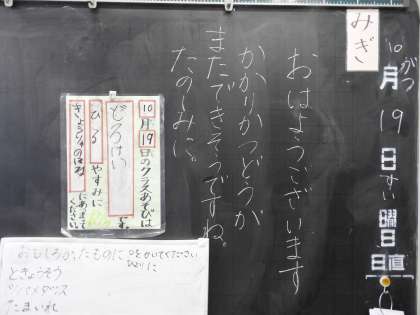 みぎ
10がつ
月19日すい曜日
日直
おはようございます
かかりかつどうが
またできそうですね。
たのしみに。
10月19日のクラスあそびは
どろけい
です。
ひるやすみに
にあつまって
ください。
おもしろかったものに
○をかいてください
ひとり1こ
ときょうそう
ツバメダンス
たまいれ